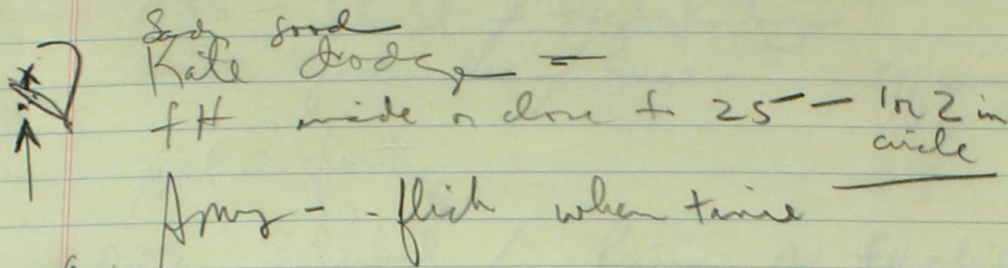 good
Kate dodge =
fH inside or close to 25 - 1 or 2 in
circle
Amy - - flick when time